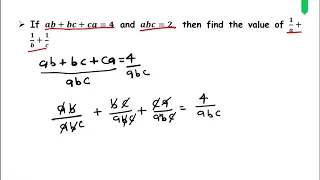 ➢ If ab + bc + ca = 4 and abc = 2 then find the value of 1/a +
1/b + 1/c
ab + bc + ca / abc = 4 / abc
ab / abc + bc / abc + ca / abc = 4 / abc